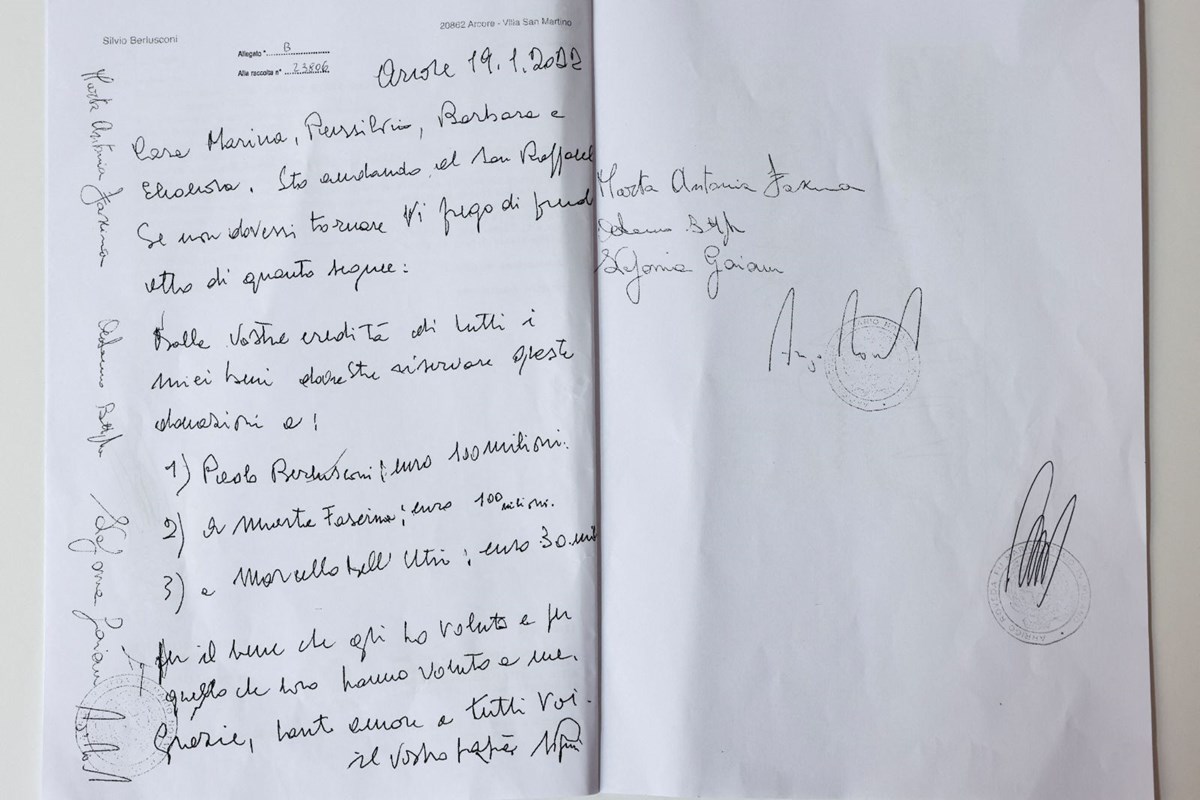 Silvio Berlusconi
20862 Arcore - Villa San Martino
Allegato "B
Alla raccolta n° 23806
Arcore 19.1.2022
Cara Marina, Piersilvio, Barbara e
Eleonora, Sto andando al San Raffael
Se non dovessi tornare Vi prego di prend
atto di quanto segue:
Dalle vostre eredità di tutti i
miei beni dovreste riservare queste
donazioni a:
1) Paolo Berlusconi; euro 100 milioni.
2) a Marta Fascina; euro 100 milioni.
3) a Marcello Dell'Utri; euro 30 mil
per il bene che gli ho voluto e per
quello che loro hanno voluto a me.
Grazie, tanto amore a tutti voi.
il vostro papà
Marta Antonia Fascina
Stefania
Marta Antonia Fascina
Stefania
ARRIGO ROVEDA